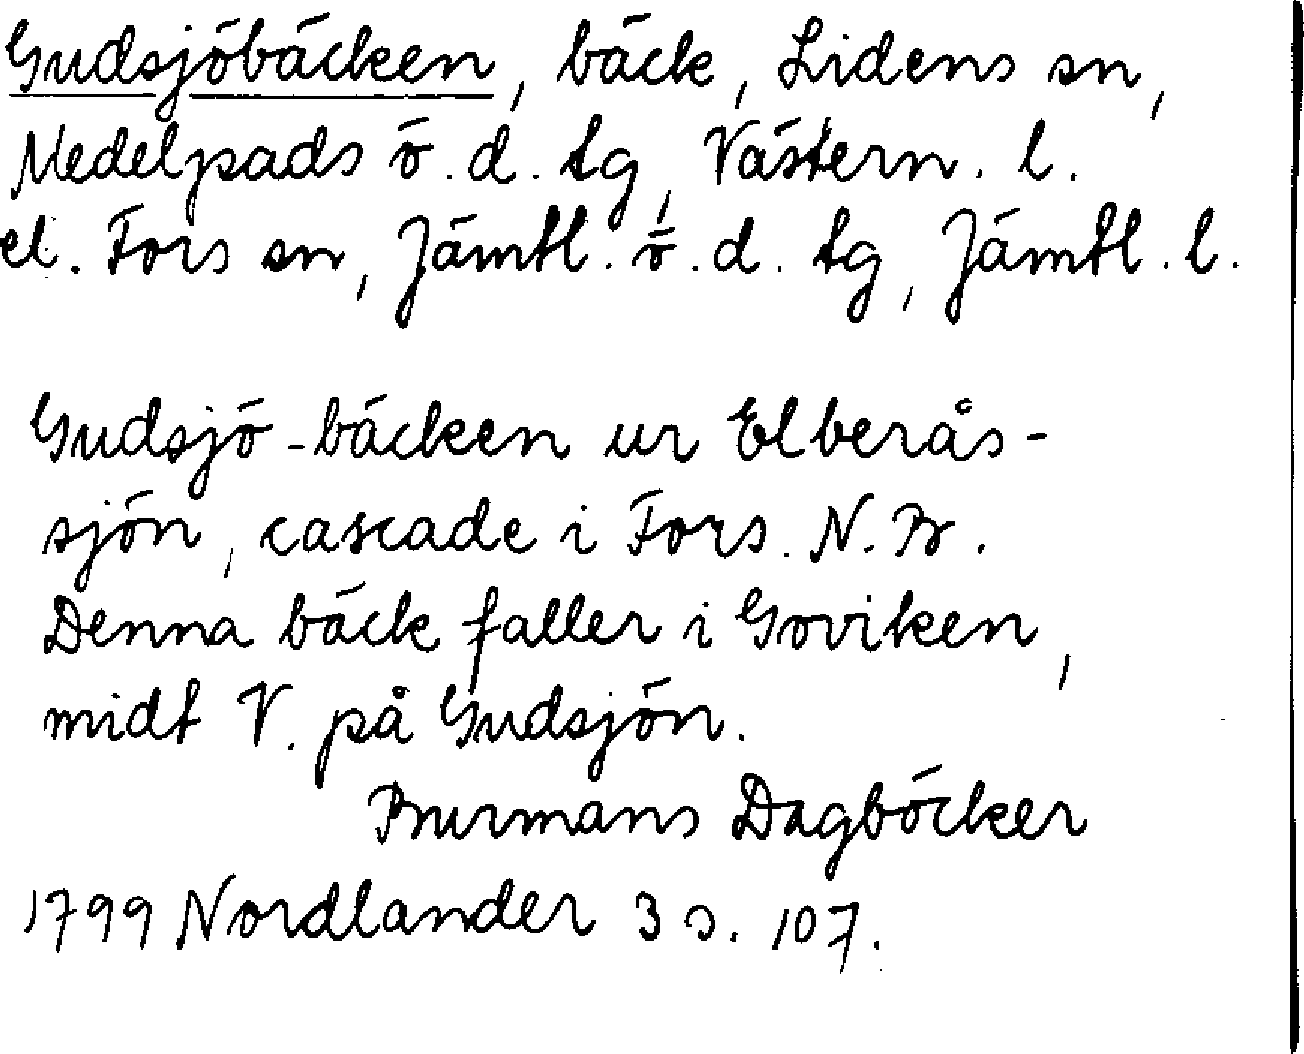 Gudsjöbäcken, bäck, Lidens sn,
Medelpads ö. d. tg, Västern. l.
el. Fors sn, Jämtl. ö. d. tg, Jämtl. l.
Gudsjö-bäcken ur Elberås-
sjön, cascade i Fors. N. B.
Denna bäck faller i Goviken,
midt V. på Gudsjön.
Burmans Dagböcker
1799 Nordlander 3 s. 107.